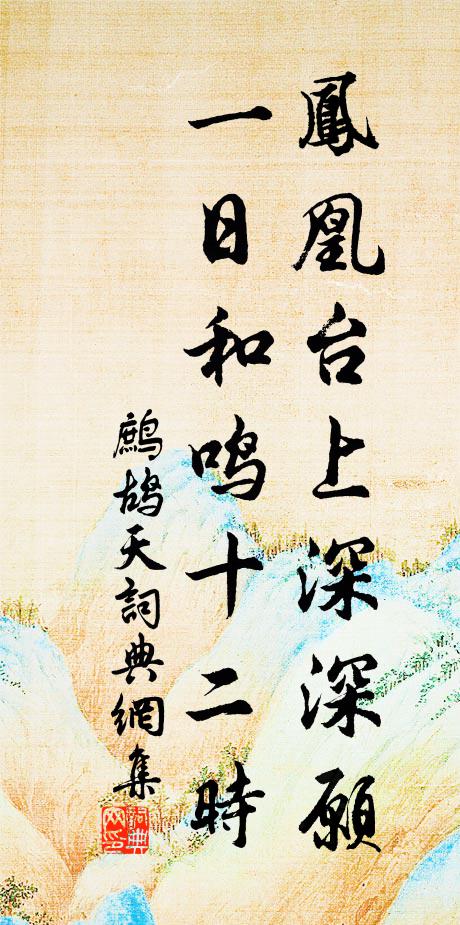 鳳凰台上深深願
一日和鸣十二時
鷓鴣天詞典網集
詞典